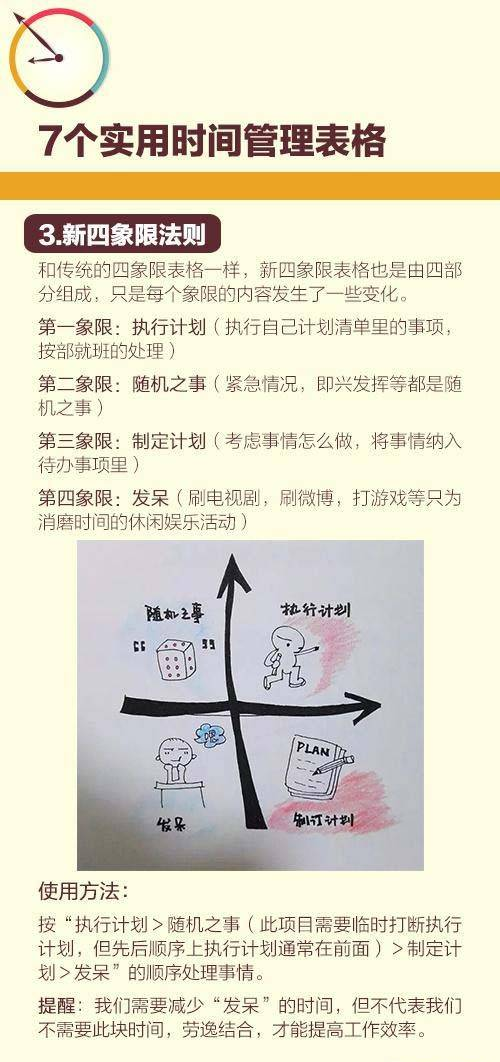 7个实用时间管理表格
3.新四象限法则
和传统的四象限表格一样，新四象限表格也是由四部
分组成，只是每个象限的内容发生了一些变化。
第一象限：执行计划（执行自己计划清单里的事项，
按部就班的处理）
第二象限：随机之事（紧急情况，即兴发挥等都是随
机之事）
第三象限：制定计划（考虑事情怎么做，将事情纳入
待办事项里）
第四象限：发呆（刷电视剧，刷微博，打游戏等只为
消磨时间的休闲娱乐活动）
随机之事
执行计划
嗯
PLAN
发呆
制订计划
使用方法：
按“执行计划＞随机之事（此项目需要临时打断执行
计划，但先后顺序上执行计划通常在前面）＞制定计
划＞发呆”的顺序处理事情。
提醒：我们需要减少“发呆”的时间，但不代表我们
不需要此块时间，劳逸结合，才能提高工作效率。